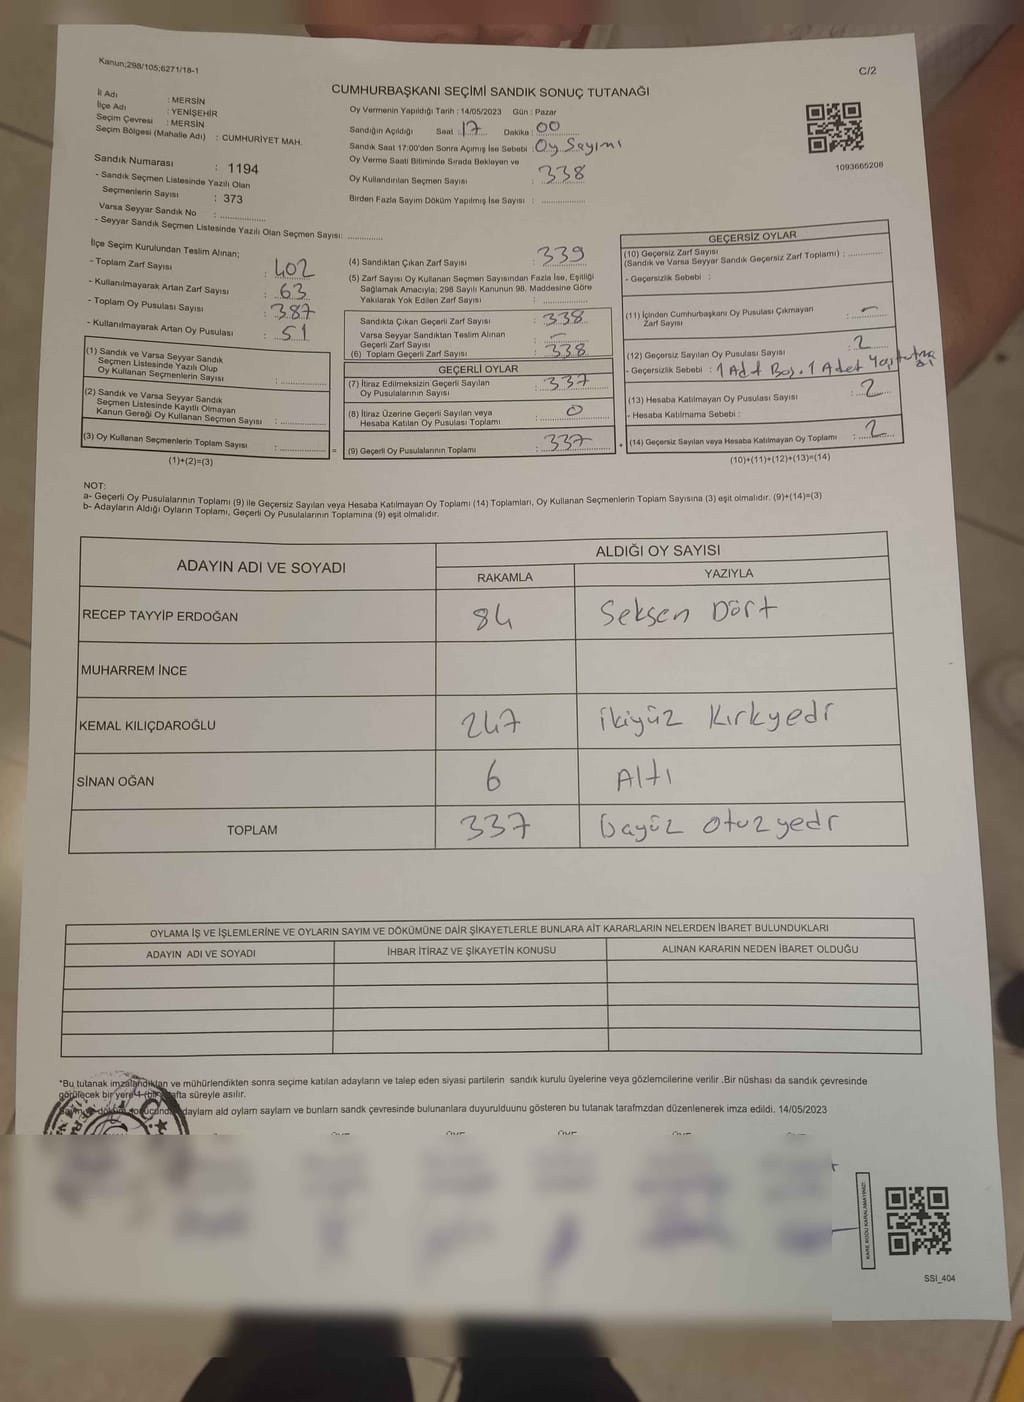 Kanun;298/105;6271/18-1
C/2
CUMHURBAŞKANI SEÇİMİ SANDIK SONUÇ TUTANAĞI
İl Adı : MERSİN
İlçe Adı : YENİŞEHİR
Seçim Çevresi : MERSİN
Seçim Bölgesi (Mahalle Adı) : CUMHURİYET MAH.
Sandık Numarası : 1194
- Sandık Seçmen Listesinde Yazılı Olan
Seçmenlerin Sayısı : 373
Varsa Seyyar Sandık No : ..............
- Seyyar Sandık Seçmen Listesinde Yazılı Olan Seçmen Sayısı: ............
Oy Vermenin Yapıldığı Tarih : 14/05/2023 Gün : Pazar
Sandığın Açıldığı Saat : 17 Dakika : 00
Sandık Saat 17:00'den Sonra Açımış İse Sebebi : Oy Sayımı
Oy Verme Saati Bitiminde Sırada Bekleyen ve
Oy Kullandırılan Seçmen Sayısı : 338
Birden Fazla Sayım Döküm Yapılmış İse Sayısı : ............
1093665208
İlçe Seçim Kurulundan Teslim Alınan;
- Toplam Zarf Sayısı : 402
- Kullanılmayarak Artan Zarf Sayısı : 63
- Toplam Oy Pusulası Sayısı : 387
- Kullanılmayarak Artan Oy Pusulası : 51
(1) Sandık ve Varsa Seyyar Sandık
Seçmen Listesinde Yazılı Olup
Oy Kullanan Seçmenlerin Sayısı : ............
(2) Sandık ve Varsa Seyyar Sandık
Seçmen Listesinde Kayıtlı Olmayan
Kanun Gereği Oy Kullanan Seçmen Sayısı : ............
(3) Oy Kullanan Seçmenlerin Toplam Sayısı : ............
(1)+(2)=(3)
(4) Sandıktan Çıkan Zarf Sayısı : 339
(5) Zarf Sayısı Oy Kullanan Seçmen Sayısından Fazla İse, Eşitliği
Sağlamak Amacıyla; 298 Sayılı Kanunun 98. Maddesine Göre
Yakılarak Yok Edilen Zarf Sayısı : ............
Sandıkta Çıkan Geçerli Zarf Sayısı : 338
Varsa Seyyar Sandıktan Teslim Alınan
Geçerli Zarf Sayısı : -
(6) Toplam Geçerli Zarf Sayısı : 338
GEÇERLİ OYLAR
(7) İtiraz Edilmeksizin Geçerli Sayılan
Oy Pusulalarının Sayısı : 337
(8) İtiraz Üzerine Geçerli Sayılan veya
Hesaba Katılan Oy Pusulası Toplamı : 0
= (9) Geçerli Oy Pusulalarının Toplamı : 337 +
GEÇERSİZ OYLAR
(10) Geçersiz Zarf Sayısı
(Sandık ve Varsa Seyyar Sandık Geçersiz Zarf Toplamı) : ............
- Geçersizlik Sebebi :
(11) İçinden Cumhurbaşkanı Oy Pusulası Çıkmayan
Zarf Sayısı : -
(12) Geçersiz Sayılan Oy Pusulası Sayısı : 2
- Geçersizlik Sebebi : 1 Adet Boş. 1 Adet
(13) Hesaba Katılmayan Oy Pusulası Sayısı : 2
- Hesaba Katılmama Sebebi :
(14) Geçersiz Sayılan veya Hesaba Katılmayan Oy Toplamı : 2
(10)+(11)+(12)+(13)=(14)
NOT:
a- Geçerli Oy Pusulalarının Toplamı (9) ile Geçersiz Sayılan veya Hesaba Katılmayan Oy Toplamı (14) Toplamları, Oy Kullanan Seçmenlerin Toplam Sayısına (3) eşit olmalıdır. (9)+(14)=(3)
b- Adayların Aldığı Oyların Toplamı, Geçerli Oy Pusulalarının Toplamına (9) eşit olmalıdır.
ADAYIN ADI VE SOYADI ALDIĞI OY SAYISI
RAKAMLA YAZIYLA
RECEP TAYYİP ERDOĞAN 84 Seksen Dört
MUHARREM İNCE
KEMAL KILIÇDAROĞLU 247 İkiyüz Kırkyedi
SİNAN OĞAN 6 Altı
TOPLAM 337 Üçyüz otuz yedi
OYLAMA İŞ VE İŞLEMLERİNE VE OYLARIN SAYIM VE DÖKÜMÜNE DAİR ŞİKAYETLERLE BUNLARA AİT KARARLARIN NELERDEN İBARET BULUNDUKLARI
ADAYIN ADI VE SOYADI İHBAR İTİRAZ VE ŞİKAYETİN KONUSU ALINAN KARARIN NEDEN İBARET OLDUĞU
*Bu tutanak imzalandıktan ve mühürlendikten sonra seçime katılan adayların ve talep eden siyasi partilerin sandık kurulu üyelerine veya gözlemcilerine verilir .Bir nüshası da sandık çevresinde
görülecek bir yere 1 (bir) hafta süreyle asılır.
Sayım ve döküm sonucunda adaylam ald oylarn saylam ve bunlarn sandk çevresinde bulunanlara duyurulduunu gösteren bu tutanak tarafmzdan düzenlenerek imza edildi. 14/05/2023
KARE KODU KARALAMAYINIZ!
SSI_404